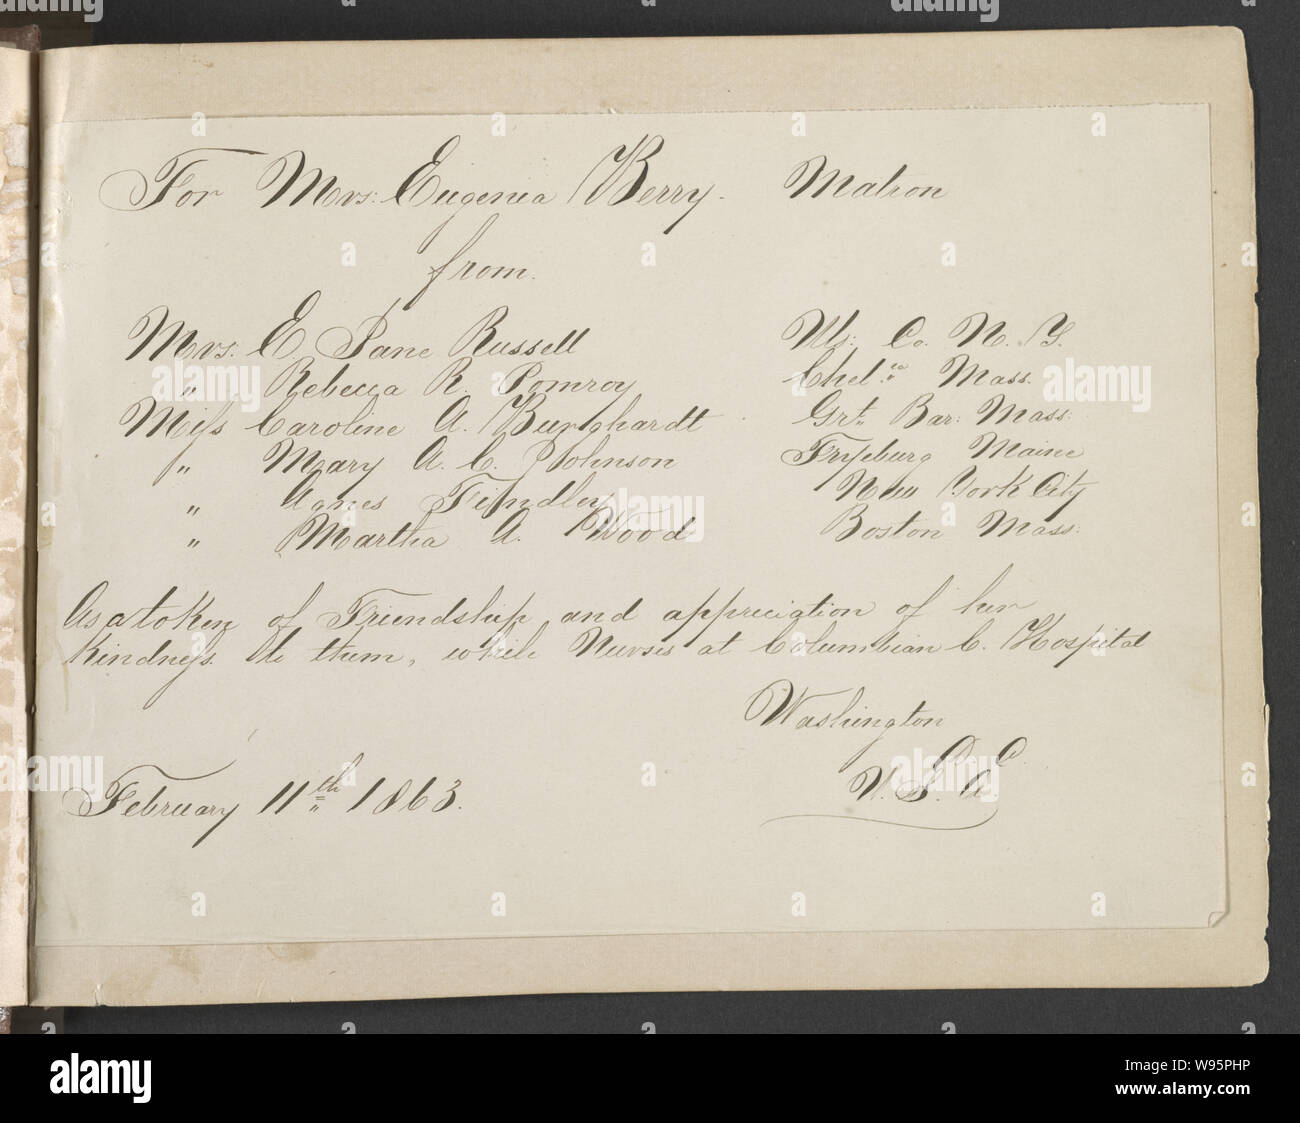 For Mrs: Eugenia Berry. Matron
from.
Mrs. E Jane Russell Uls: Co. N. Y.
" Rebecca R. Pomroy Chel.ᶜᵃ Mass.
Miss Caroline A. Burghardt Grt. Bar: Mass:
" Mary A. C. Johnson Fryeburg Maine
" Agnes Tindley New York City
" Martha A. Wood Boston Mass:
As a token of Friendship and appreciation of her
kindness to them, while Nurses at Columbian C. Hospital
Washington
D C
February 11th 1863. U. S. A
alamy
W95PHP
www.alamy.com